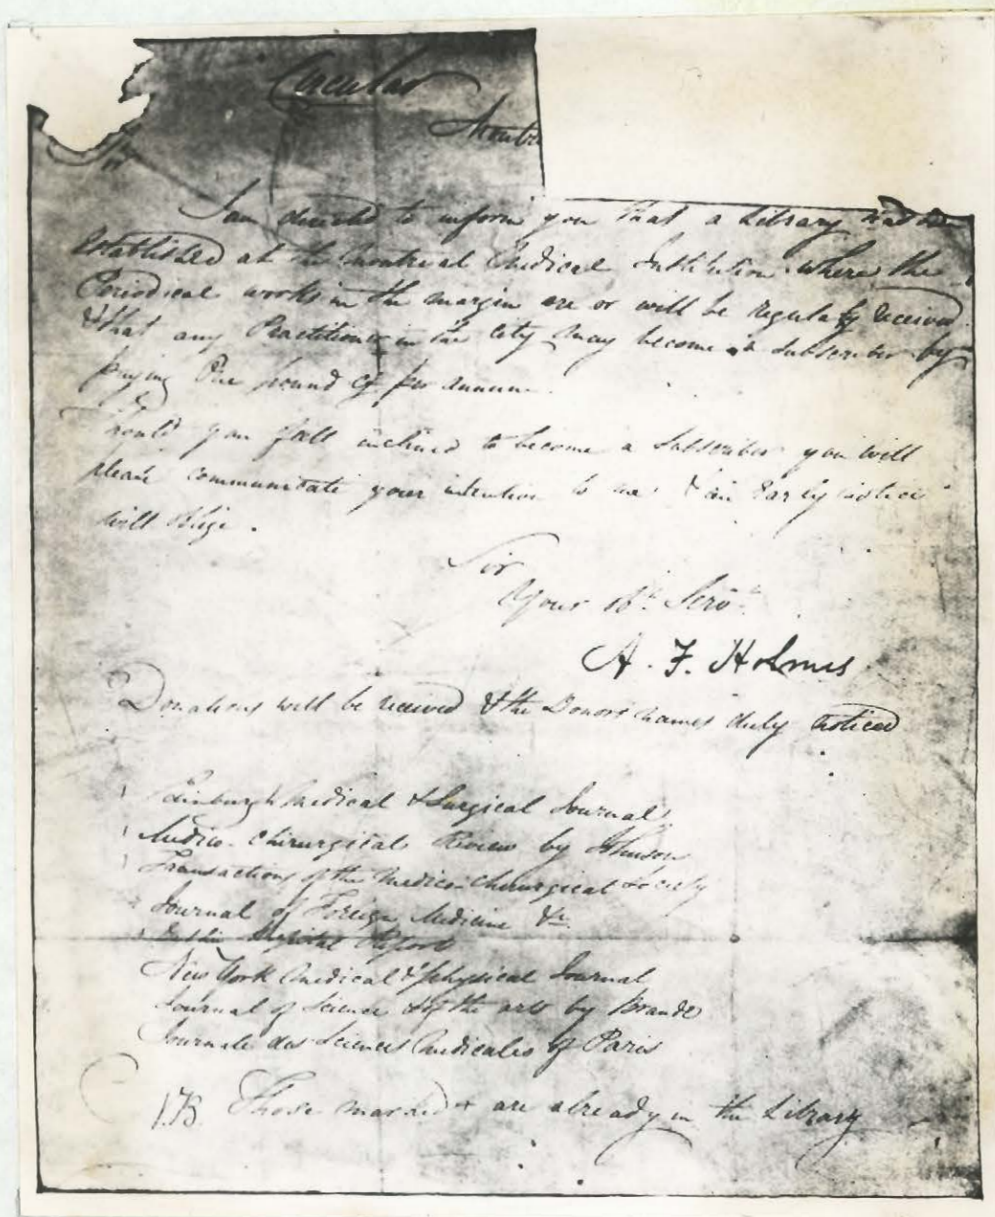 Circular
Montre
Sir
I am directed to inform you that a Library has been
established at the Montreal Medical Institution where the
Periodical works in the margin are or will be regularly received
& that any Practitioner in the City may become a subscriber by
paying One pound Cy per annum.
Should you feel inclined to become a subscriber you will
please communicate your intention to me & an early notice
will oblige.
Sir
Your Obt. Servt.
A. F. Holmes
Donations will be received & the Donors names duly noticed
Edinburgh Medical & Surgical Journal
Medico-Chirurgical Review by Johnson
Transactions of the Medico-Chirurgical Society
Journal of Foreign Medicine &c.
Hospital Report
New York Medical & physical Journal
Journal of Science & of the arts by Brande
Journale des Sciences Medicales of Paris
NB. Those marked + are already in the Library